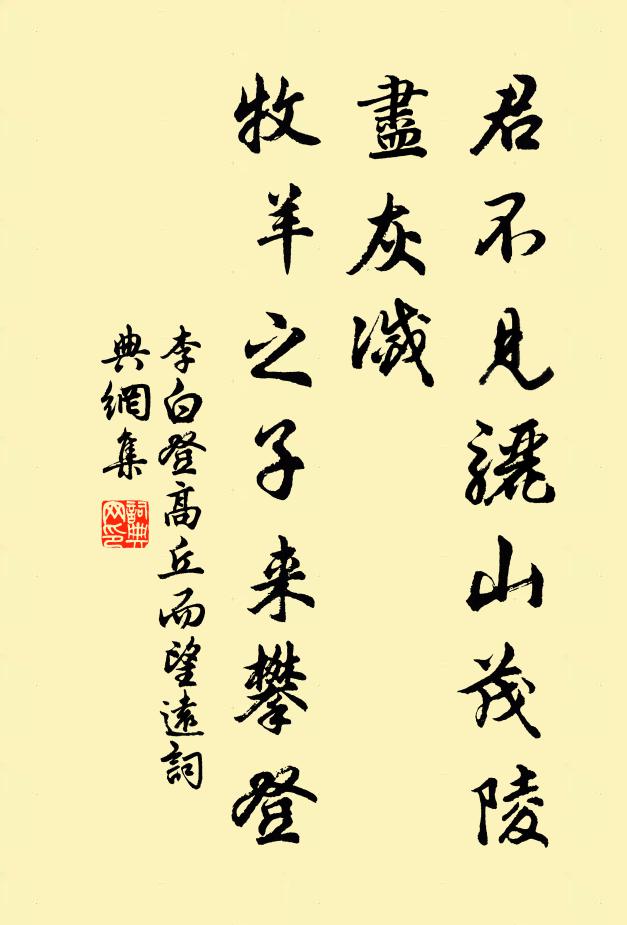 君不見驪山茂陵
盡灰滅
牧羊之子来攀登
李白登高丘而望遠詞
典網集
詞典
网印